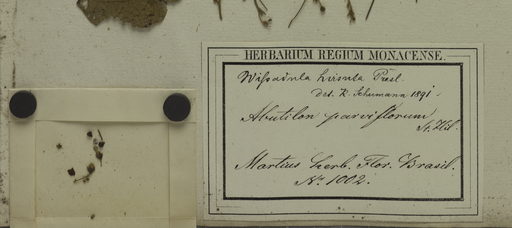 HERBARIUM REGIUM MONACENSE.
Wissadula hirsuta Presl
Det. K. Schumann 1891.
Abutilon parviflorum
St. Hil.
Martius herb. Flor. Brasil.
No. 1002.